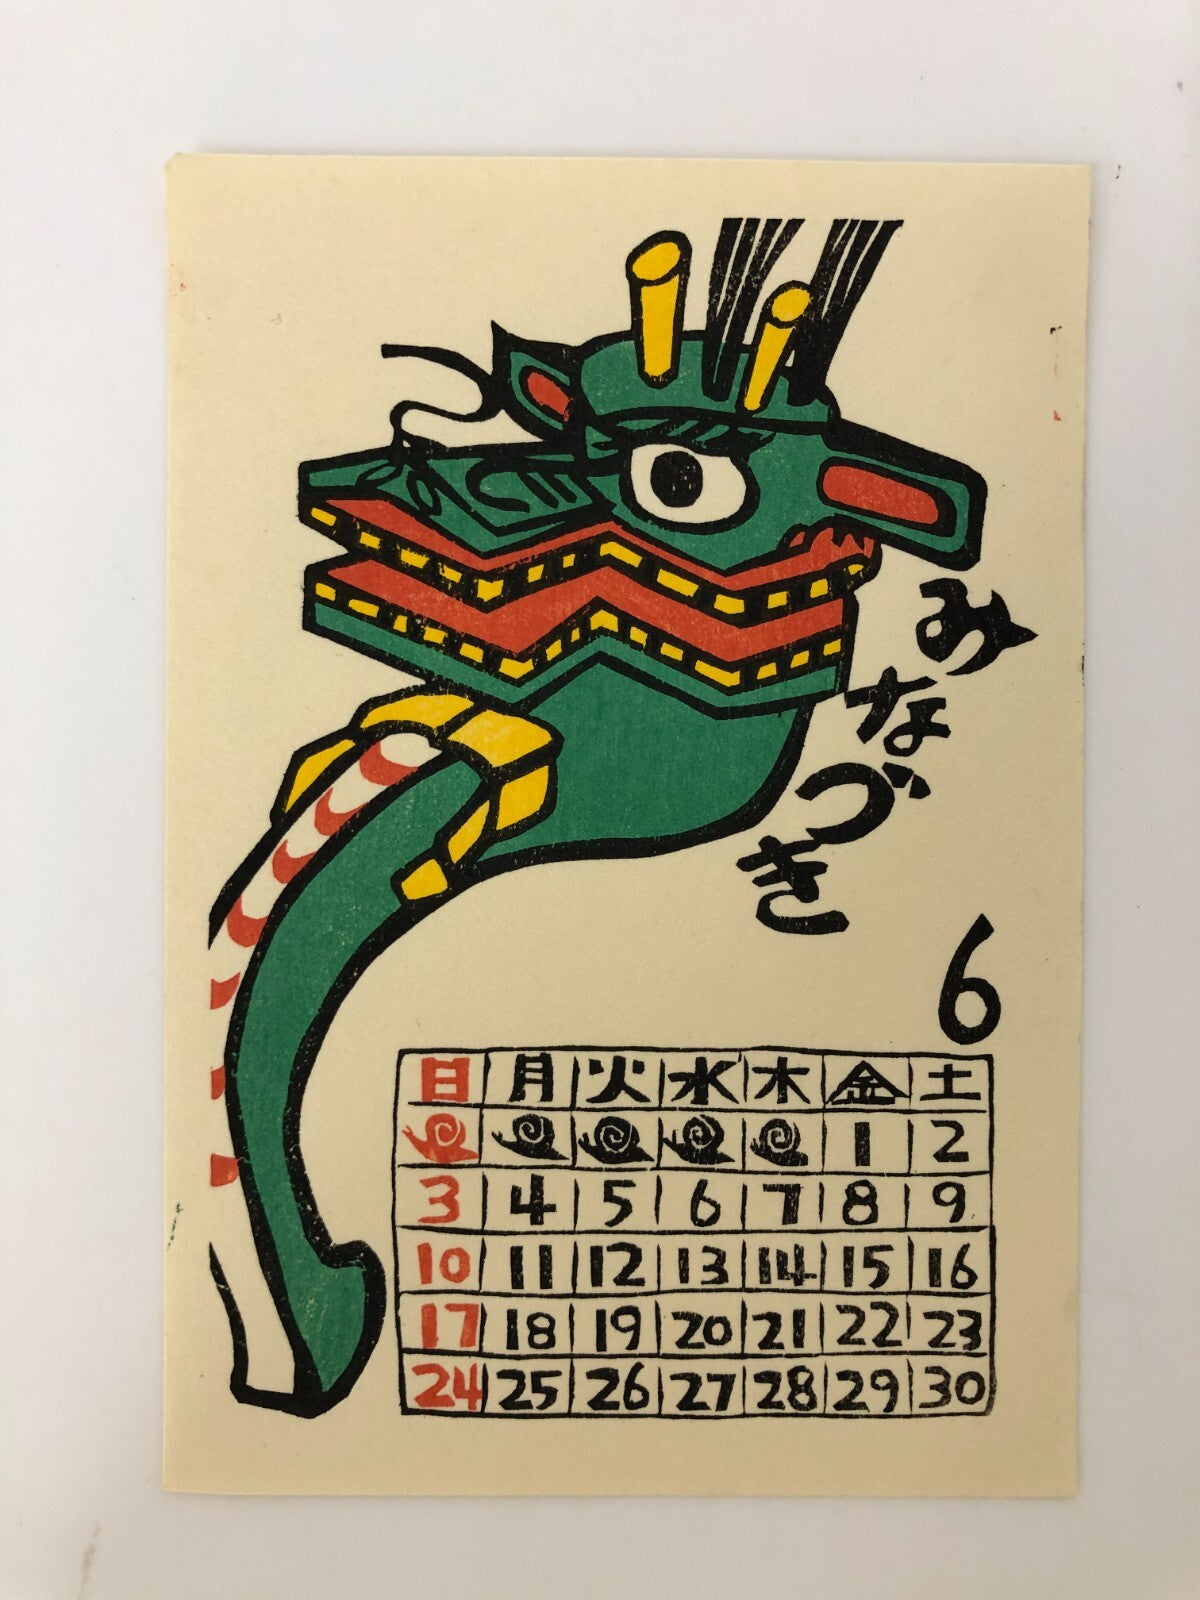 みなづき
6
日 月 火 水 木 金 土
1 2
3 4 5 6 7 8 9
10 11 12 13 14 15 16
17 18 19 20 21 22 23
24 25 26 27 28 29 30